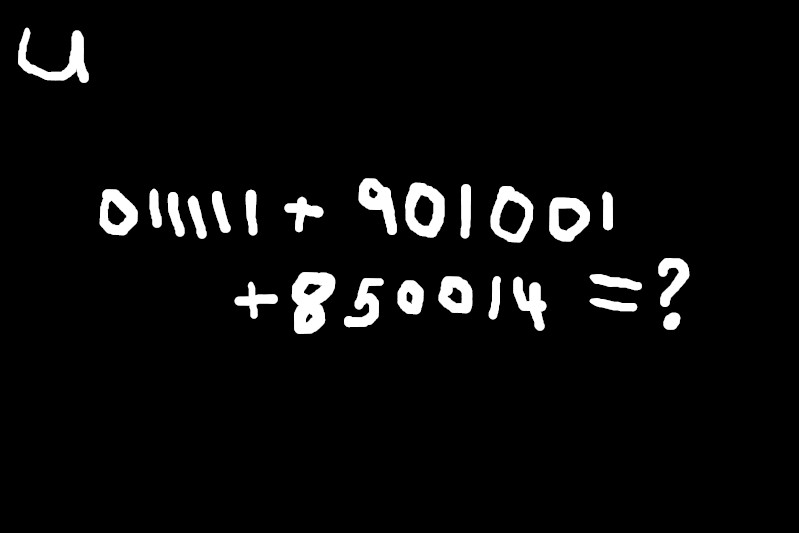 u
011111 + 901001
+850014 =?